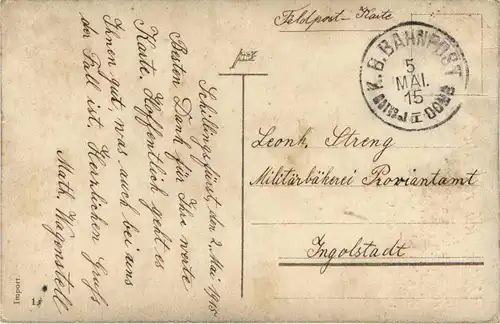 Feldpost-Karte
K.B. BAHNPOST
5
MAI.
15
II
Leonh. Streng
Militärbäkerei Proviantamt
Ingolstadt
Schillingsfürst, den 2. Mai 1915
Besten Dank für Ihre werte
Karte. Hoffentlich geht es
Ihnen gut, was auch bei uns
der Fall ist. Herzlichen Gruß
Math. Wagenstell
Import